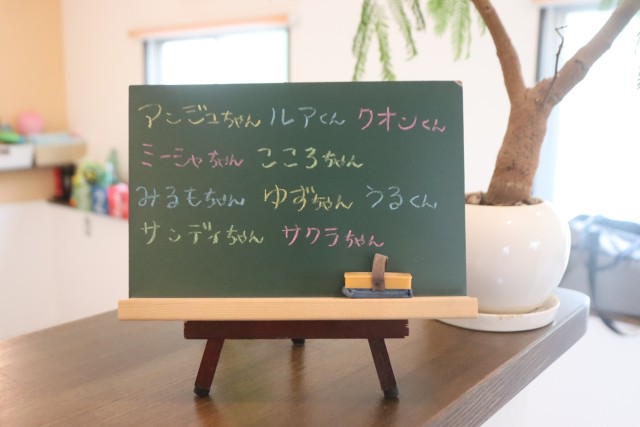 アンジュちゃん ルアくん クオンくん
ミーシャちゃん こころちゃん
みるもちゃん ゆずちゃん うるくん
サンディちゃん サクラちゃん